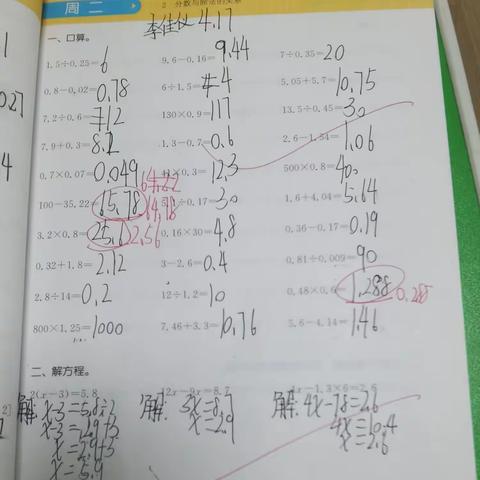 周 二
2 分数与除法的关系
李佳仪 4.17
一、口算。
1.5÷0.25=6 9.6-0.16=9.44 7÷0.35=20
0.8-0.02=0.78 6÷1.5=4 5.05+5.7=10.75
7.2÷0.6=12 130×0.9=117 13.5÷0.45=30
7.9+0.3=8.2 1.3-0.7=0.6 2.6-1.54=1.06
0.7×0.07=0.049 41×0.3=12.3 500×0.8=400
100-35.22=65.78 64.78 5.1÷0.17=30 1.6+4.04=5.64
3.2×0.8=25.6 2.56 0.16×30=4.8 0.36-0.17=0.19
0.32+1.8=2.12 3-2.6=0.4 0.81÷0.009=90
2.8÷14=0.2 12÷1.2=10 0.48×0.6=1.288 0.288
800×1.25=1000 7.46+3.3=10.76 5.6-4.14=1.46
二、解方程。
2(x-3)=5.8 12x-9x=8.7 4x-1.3×6=2.6
解: x-3=5.8÷2 解: 3x=8.7 解: 4x-7.8=2.6
x-3=2.9+3 x=2.9 4x=10.4
x=2.9+3 x=2.6
x=5.9